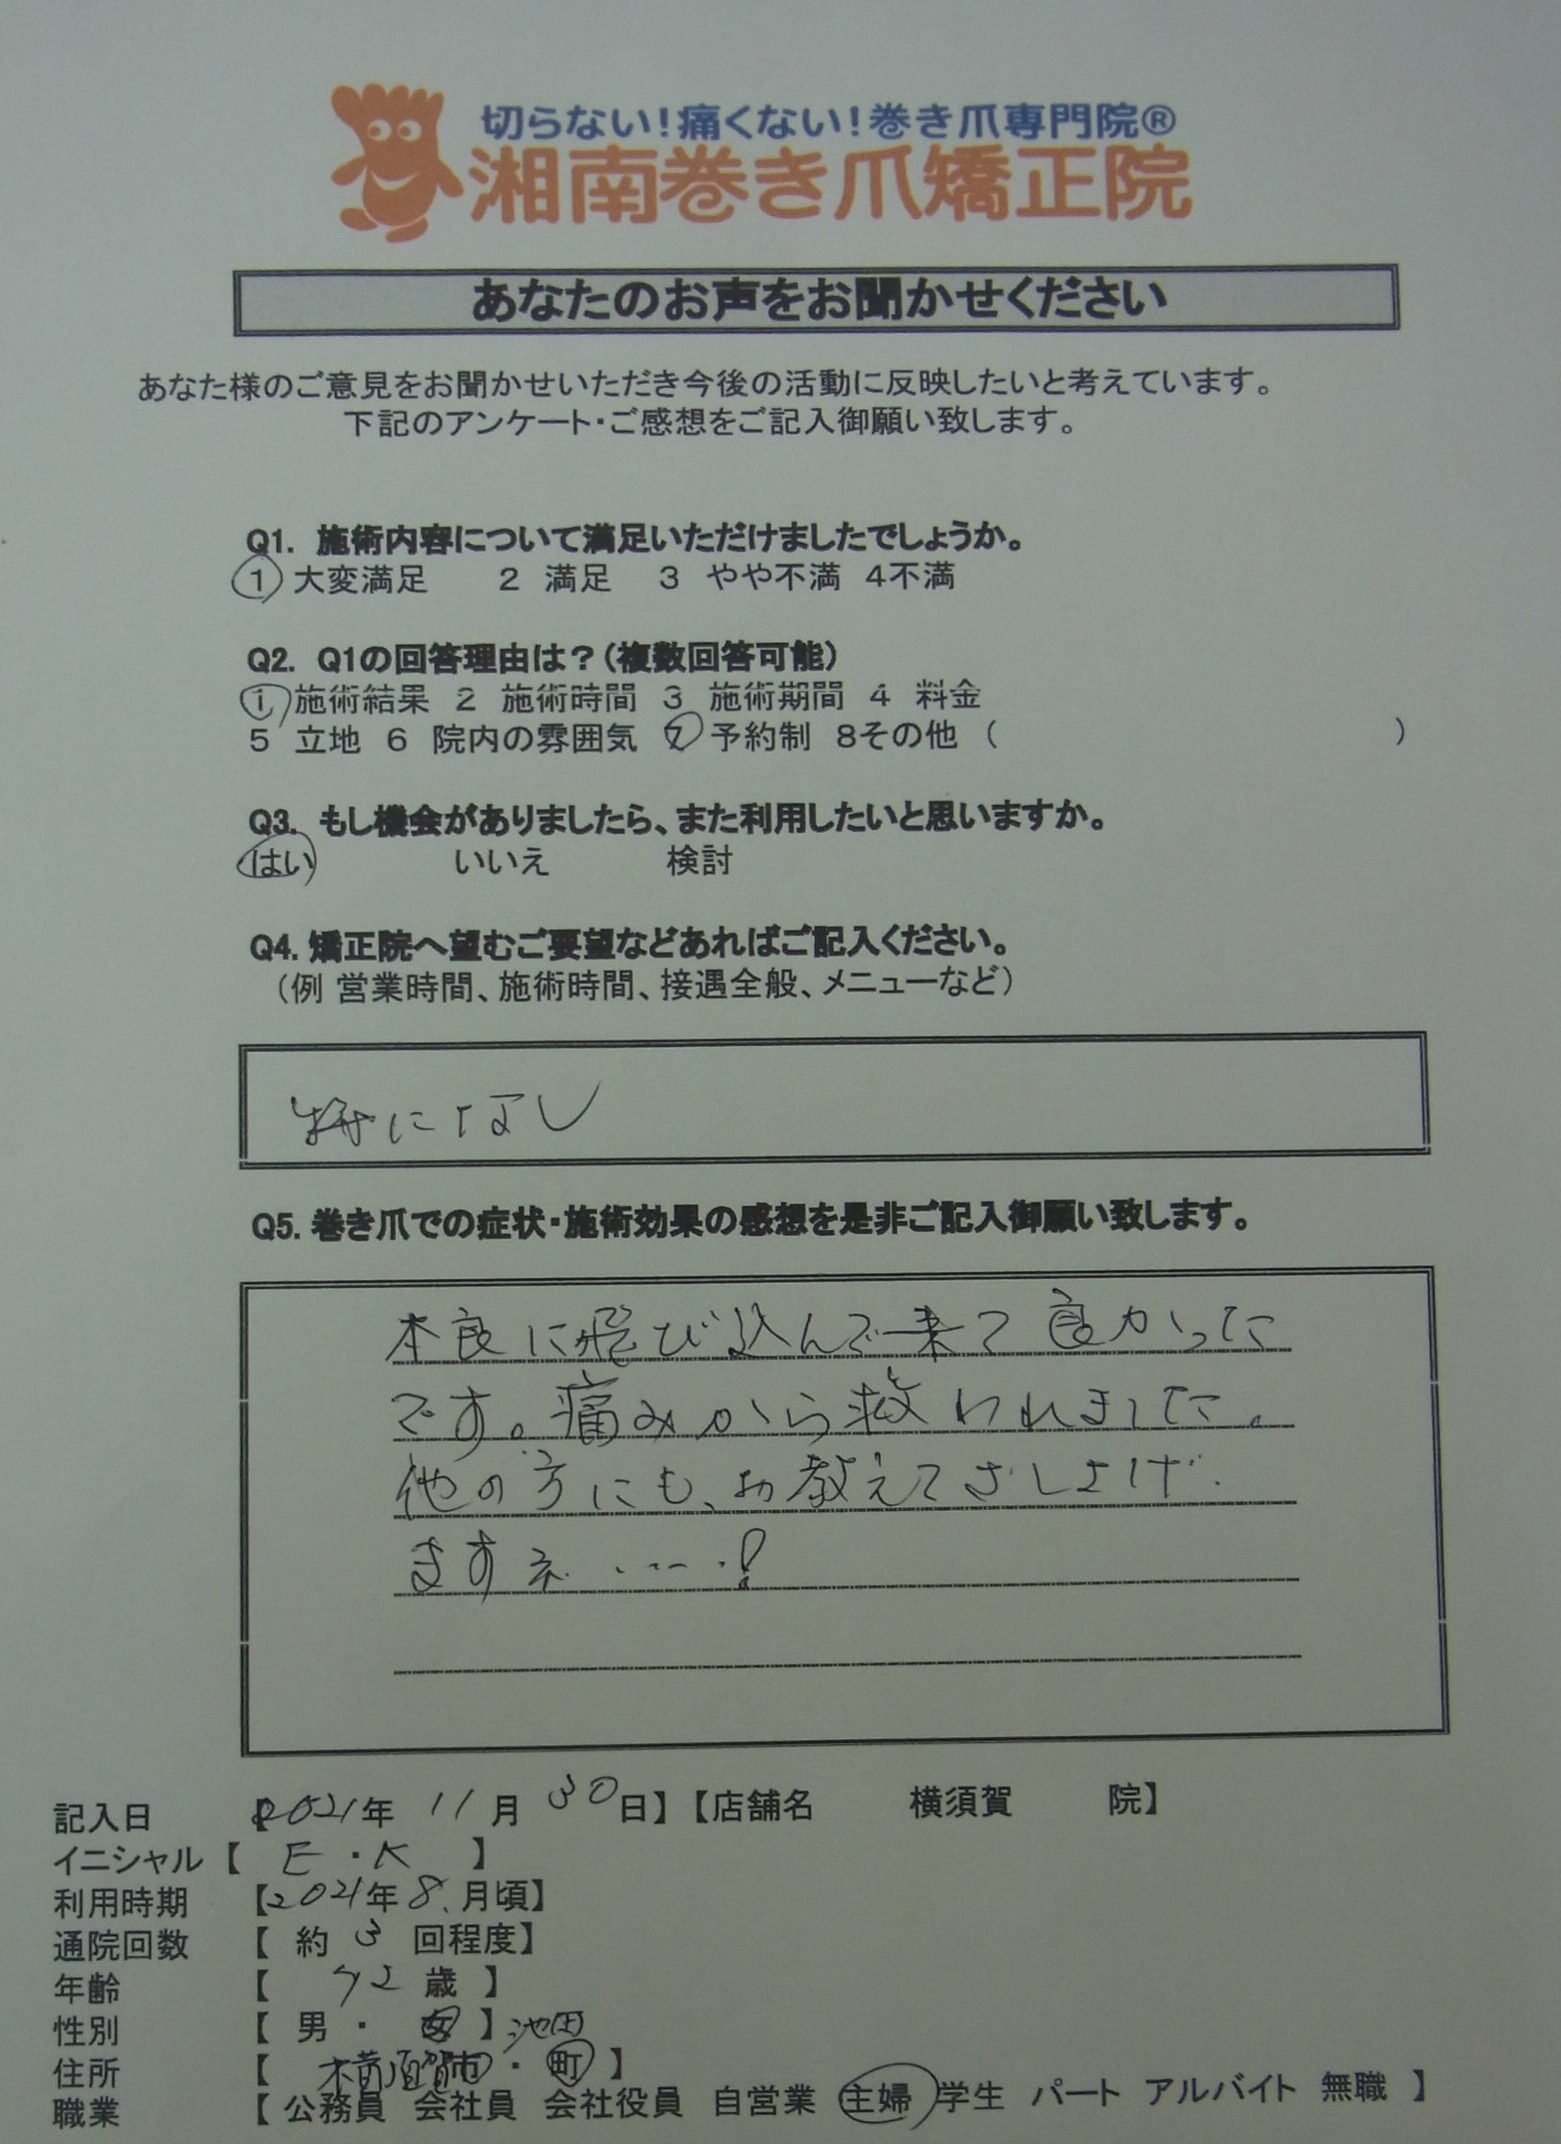 切らない！痛くない！巻き爪専門院®
湘南巻き爪矯正院
あなたのお声をお聞かせください
あなた様のご意見をお聞かせいただき今後の活動に反映したいと考えています。
下記のアンケート・ご感想をご記入御願い致します。
Q1. 施術内容について満足いただけましたでしょうか。
1 大変満足 2 満足 3 やや不満 4不満
Q2. Q1の回答理由は？（複数回答可能）
1 施術結果 2 施術時間 3 施術期間 4 料金
5 立地 6 院内の雰囲気 7 予約制 8その他 （ ）
Q3. もし機会がありましたら、また利用したいと思いますか。
はい いいえ 検討
Q4. 矯正院へ望むご要望などあればご記入ください。
（例 営業時間、施術時間、接遇全般、メニューなど）
特になし
Q5. 巻き爪での症状・施術効果の感想を是非ご記入御願い致します。
本良に飛び込んで来て良かった
です。痛みから救われました。
他の方にも、お教えてさしよげ
ますネ・・・・・!
記入日 【2021年 11月 30日】【店舗名 横須賀 院】
イニシャル【 E・K 】
利用時期 【2021年8月頃】
通院回数 【 約 3 回程度】
年齢 【 72 歳 】
性別 【 男 ・ 女 】池田
住所 【 横須賀市 ・ 町 】
職業 【 公務員 会社員 会社役員 自営業 主婦 学生 パート アルバイト 無職 】